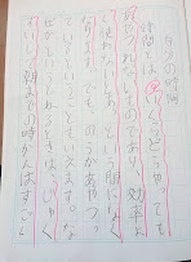 自分の時間
時間とは、いくらどうやっても
あやつれないものであり、効率よ
く使わないとあっという間になく
なります。でも、のうがあやつっ
ているということもいえます。な
ぜかというとねるときは、
して朝までの時かんはすごく